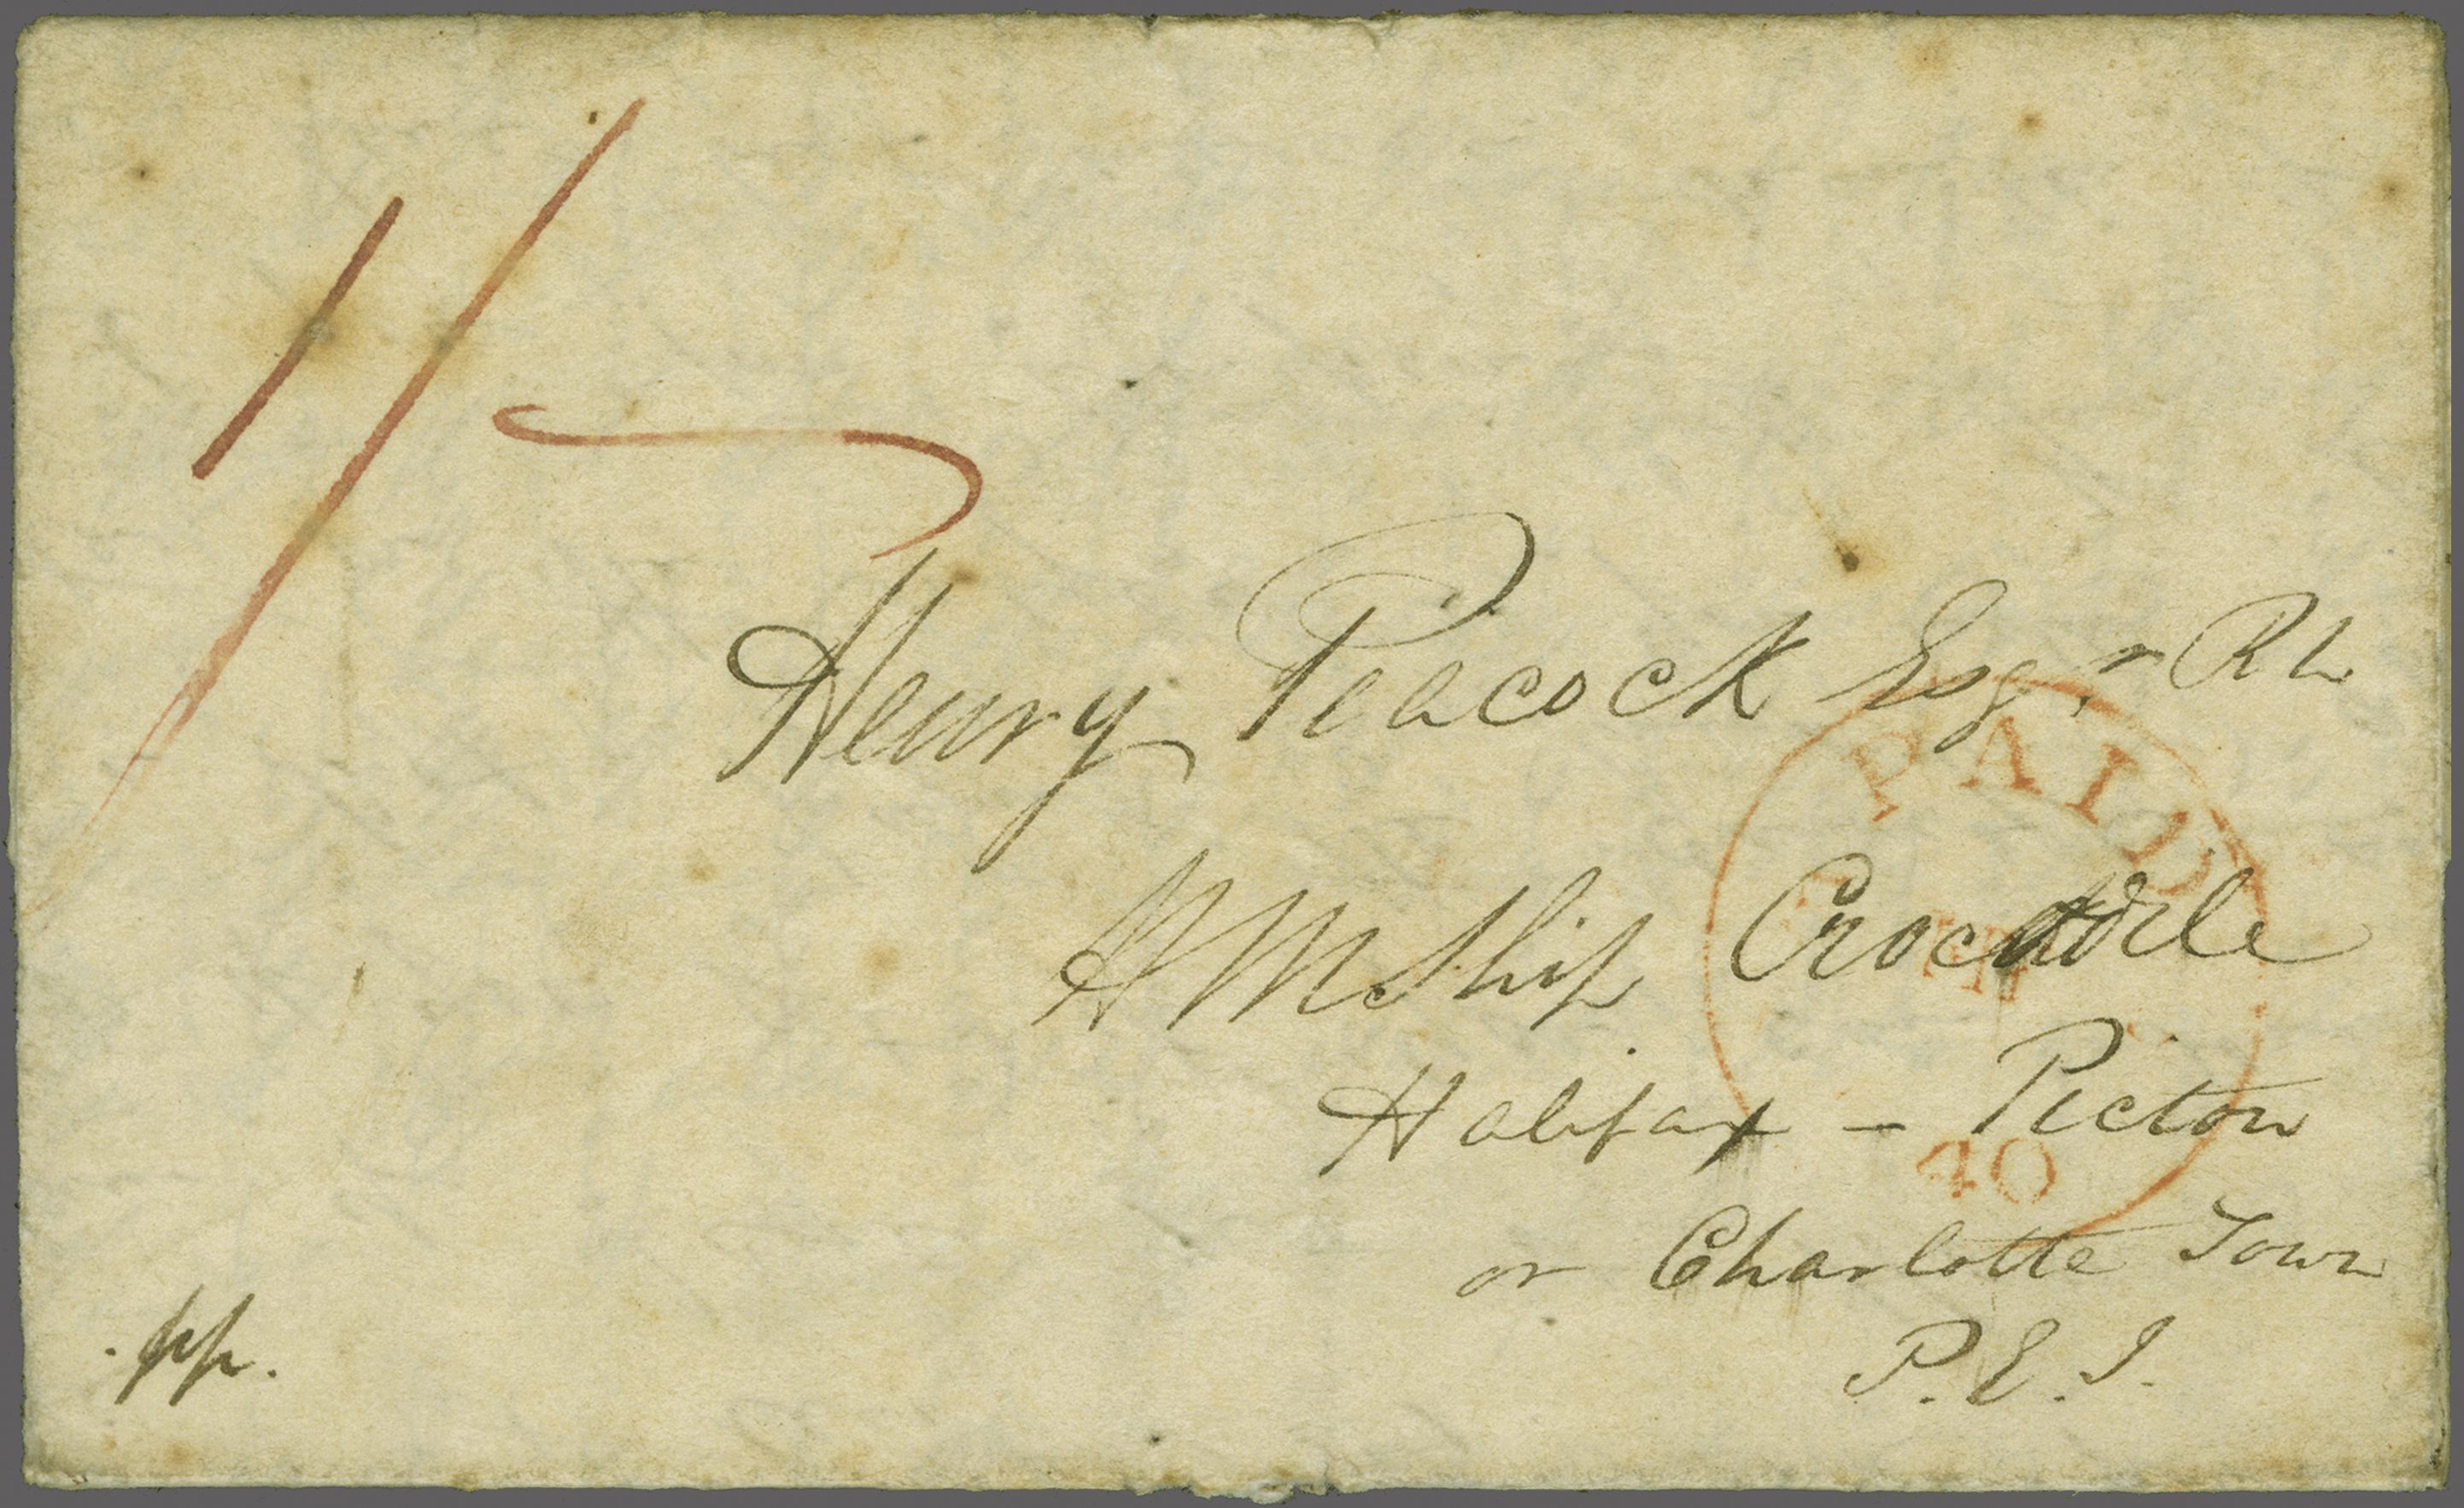 1/-
Henry Peacock Esqr RN
PAID
HM Ship Crocodile
Halifax – Pictou
40
or Charlotte Town
P.E.I.
pp.